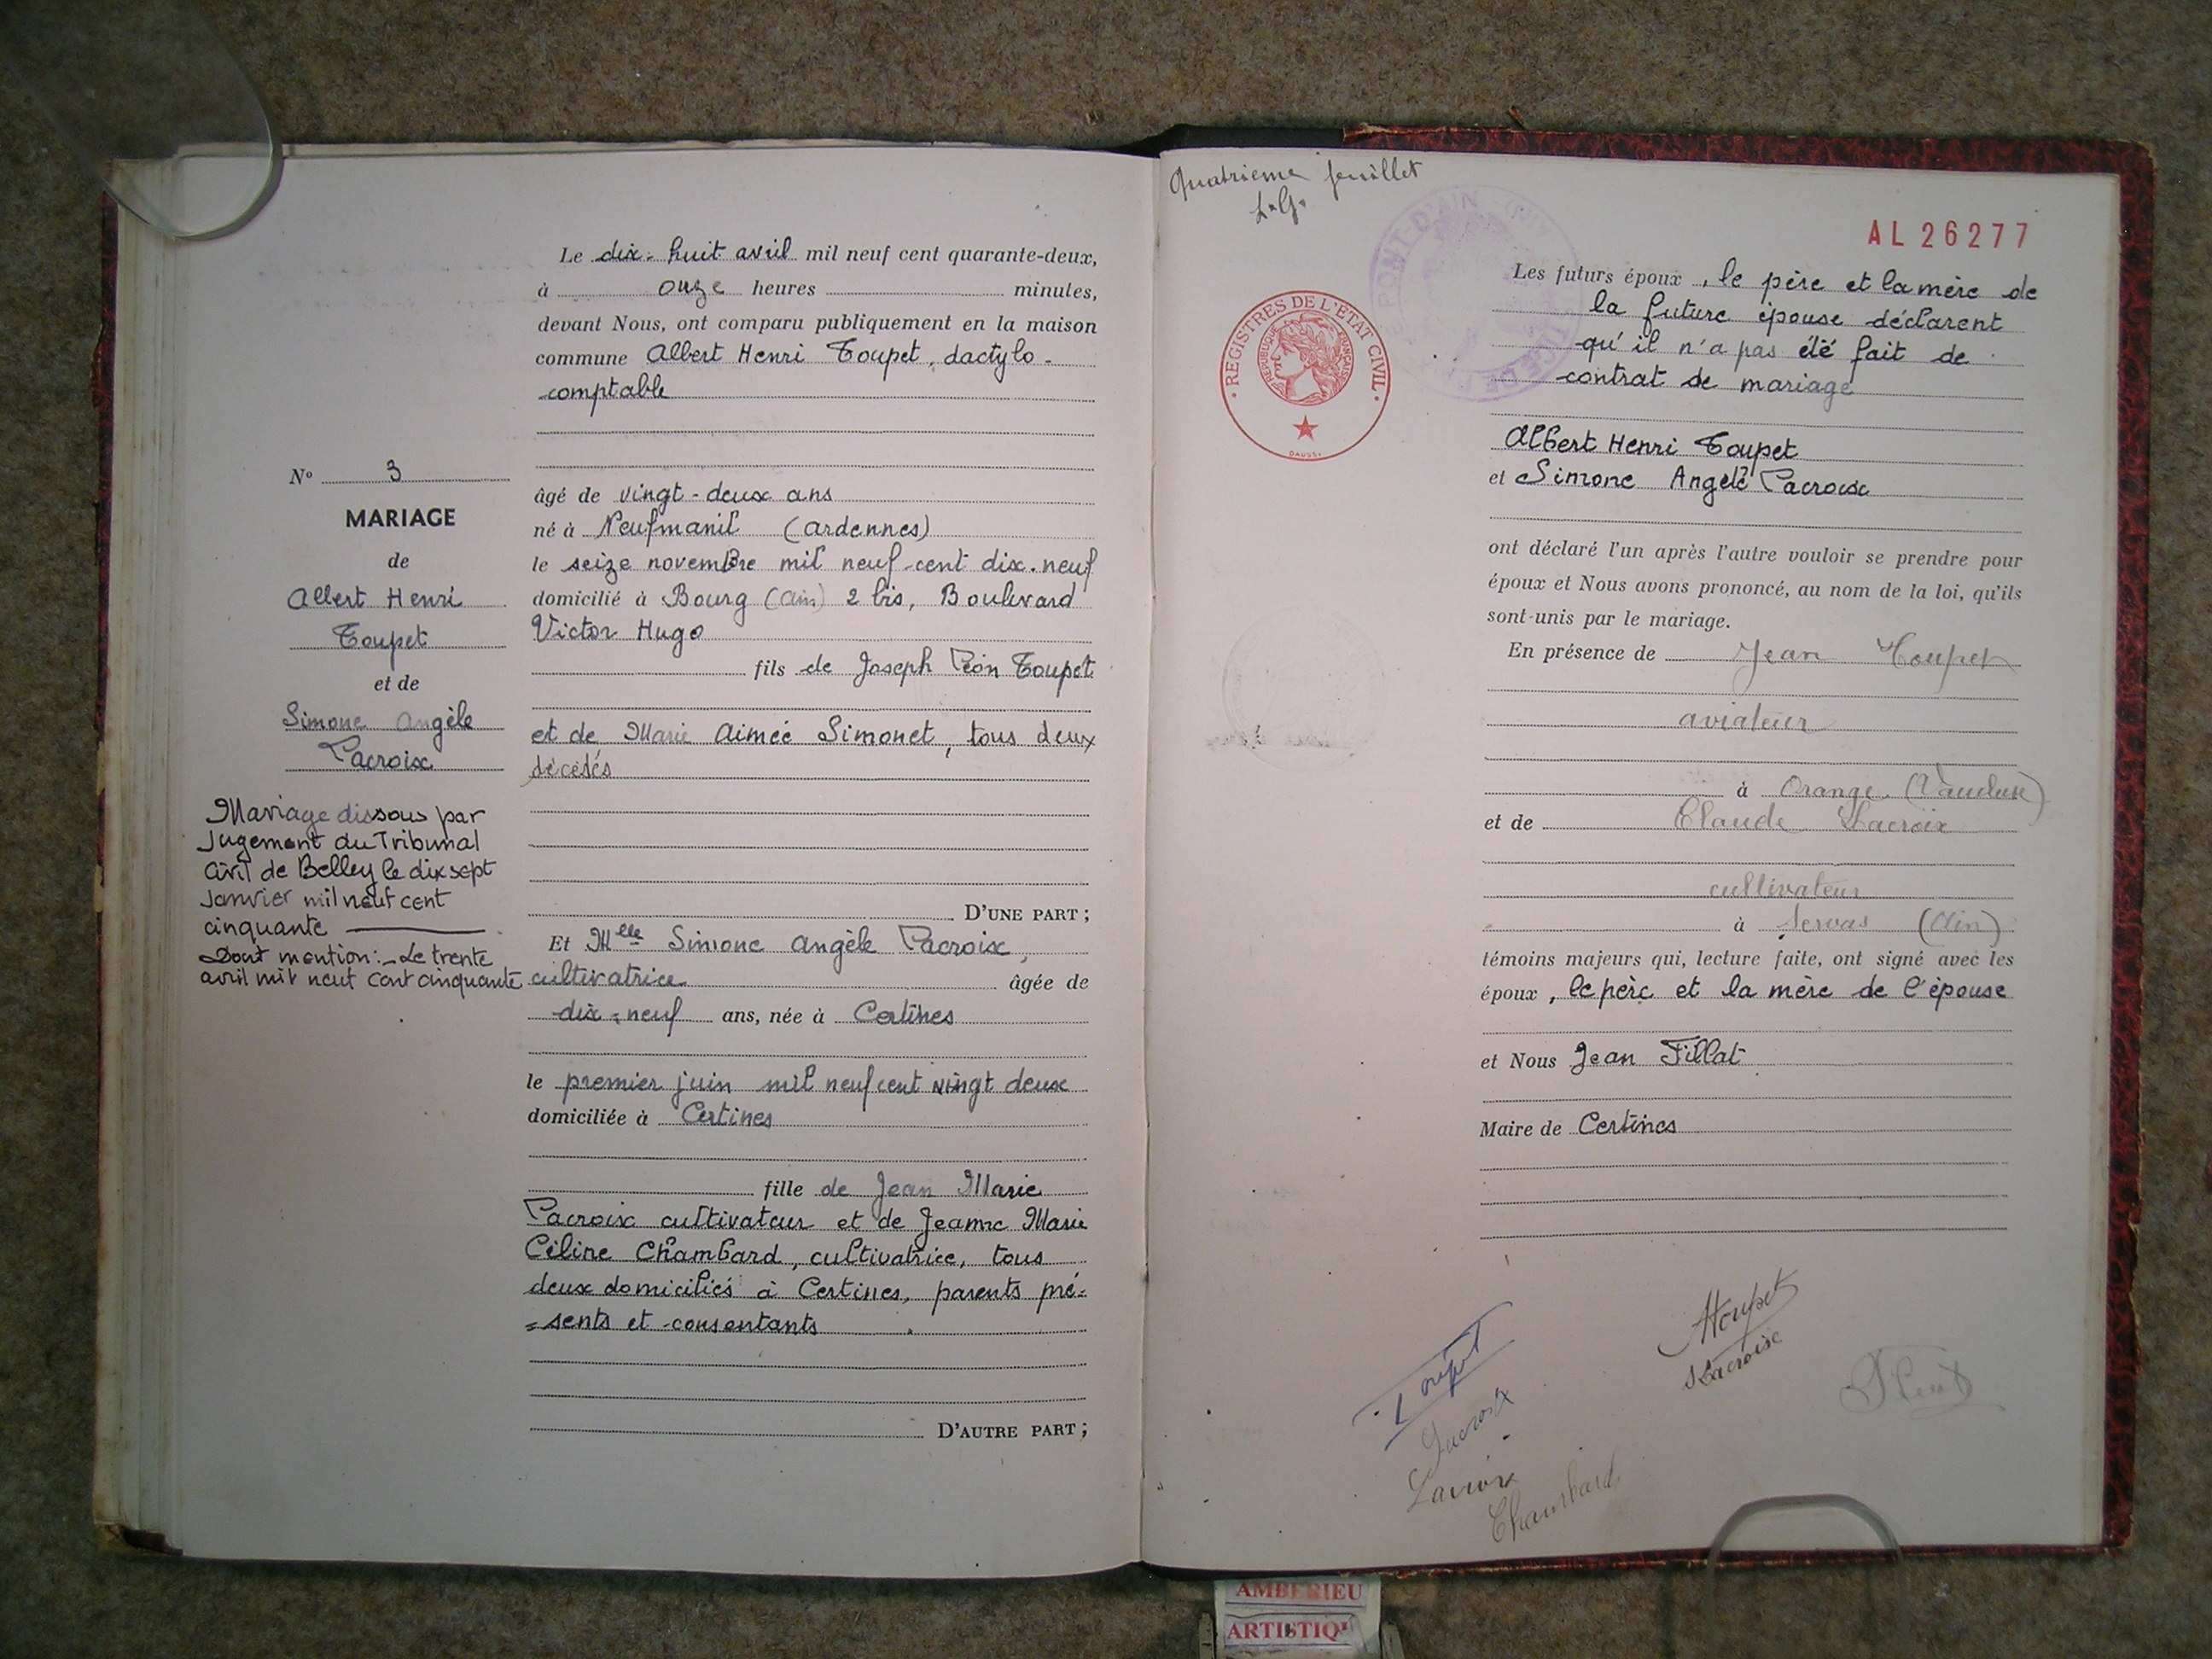 Le dix-huit avril mil neuf cent quarante-deux,
à onze heures minutes,
devant Nous, ont comparu publiquement en la maison
commune Albert Henri Toupet, dactylo-
comptable
âgé de vingt-deux ans
né à Neufmanil (Ardennes)
le seize novembre mil neuf-cent dix-neuf
domicilié à Bourg (Ain) 2 bis, Boulevard
Victor Hugo
fils de Joseph Léon Toupet
et de Marie Aimée Simonet, tous deux
décédés
D'UNE PART ;
Et Mlle Simone Angèle Lacroix,
cultivatrice âgée de
dix-neuf ans, née à Certines
le premier juin mil neuf cent vingt deux
domiciliée à Certines
fille de Jean Marie
Lacroix cultivateur et de Jeanne Marie
Céline Chambard, cultivatrice, tous
deux domiciliés à Certines, parents pré-
=sents et consentants
D'AUTRE PART ;
Nº 3
MARIAGE
de
Albert Henri
Toupet
et de
Simone Angèle
Lacroix
Mariage dissous par
Jugement du Tribunal
Civil de Belley le dix sept
Janvier mil neuf cent
cinquante
Dont mention:- Le trente
avril mil neuf cent cinquante
Quatrième feuillet
AL 26277
REGISTRES DE L'ÉTAT CIVIL
RÉPUBLIQUE FRANÇAISE
PONT-D'AIN
Les futurs époux, le père et la mère de
la future épouse déclarent
qu'il n'a pas été fait de
contrat de mariage
Albert Henri Toupet
et Simone Angèle Lacroix
ont déclaré l'un après l'autre vouloir se prendre pour
époux et Nous avons prononcé, au nom de la loi, qu'ils
sont-unis par le mariage.
En présence de Jean Toupet
aviateur
à Orange (Vaucluse)
et de Claude Lacroix
cultivateur
à Servas (Ain)
témoins majeurs qui, lecture faite, ont signé avec les
époux, le père et la mère de l'épouse
et Nous Jean Fillat
Maire de Certines
Toupet
Lacroix
Lacroix
Chambard
AToupet
SLacroix
AMBERIEU
ARTISTIQ